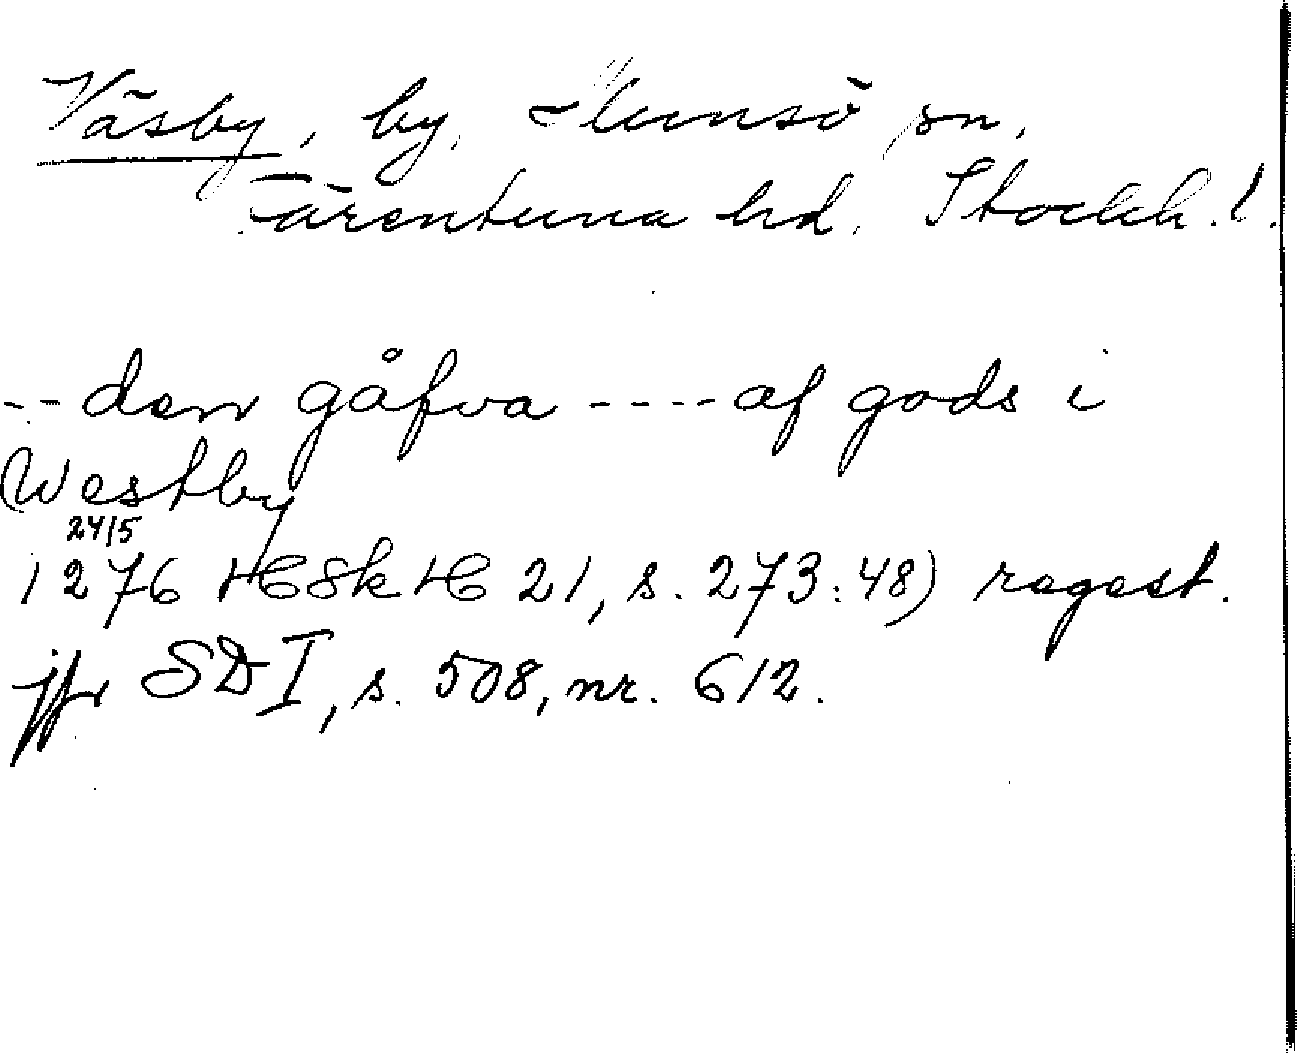 Väsby, by, Munsö sn,
Färentuna hd, Stockh. l.
-- den gåfva ---- af gods i
Westby
24/5
1276 HSkH 21, s. 273:48) regest.
jfr SD I, s. 508, nr. 612.